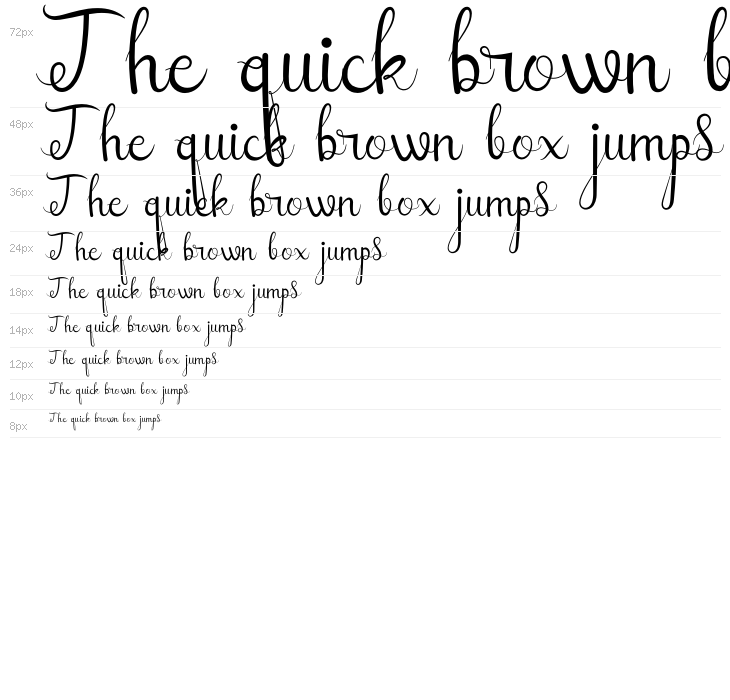 72px The quick brown b
48px The quick brown box jumps
36px The quick brown box jumps
24px The quick brown box jumps
18px The quick brown box jumps
14px The quick brown box jumps
12px The quick brown box jumps
10px The quick brown box jumps
8px The quick brown box jumps